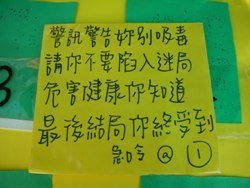 警訊警告妳別吸毒
請你不要陷入迷局
危害健康你知道
最後結局你終受到
急令 @ 1
3